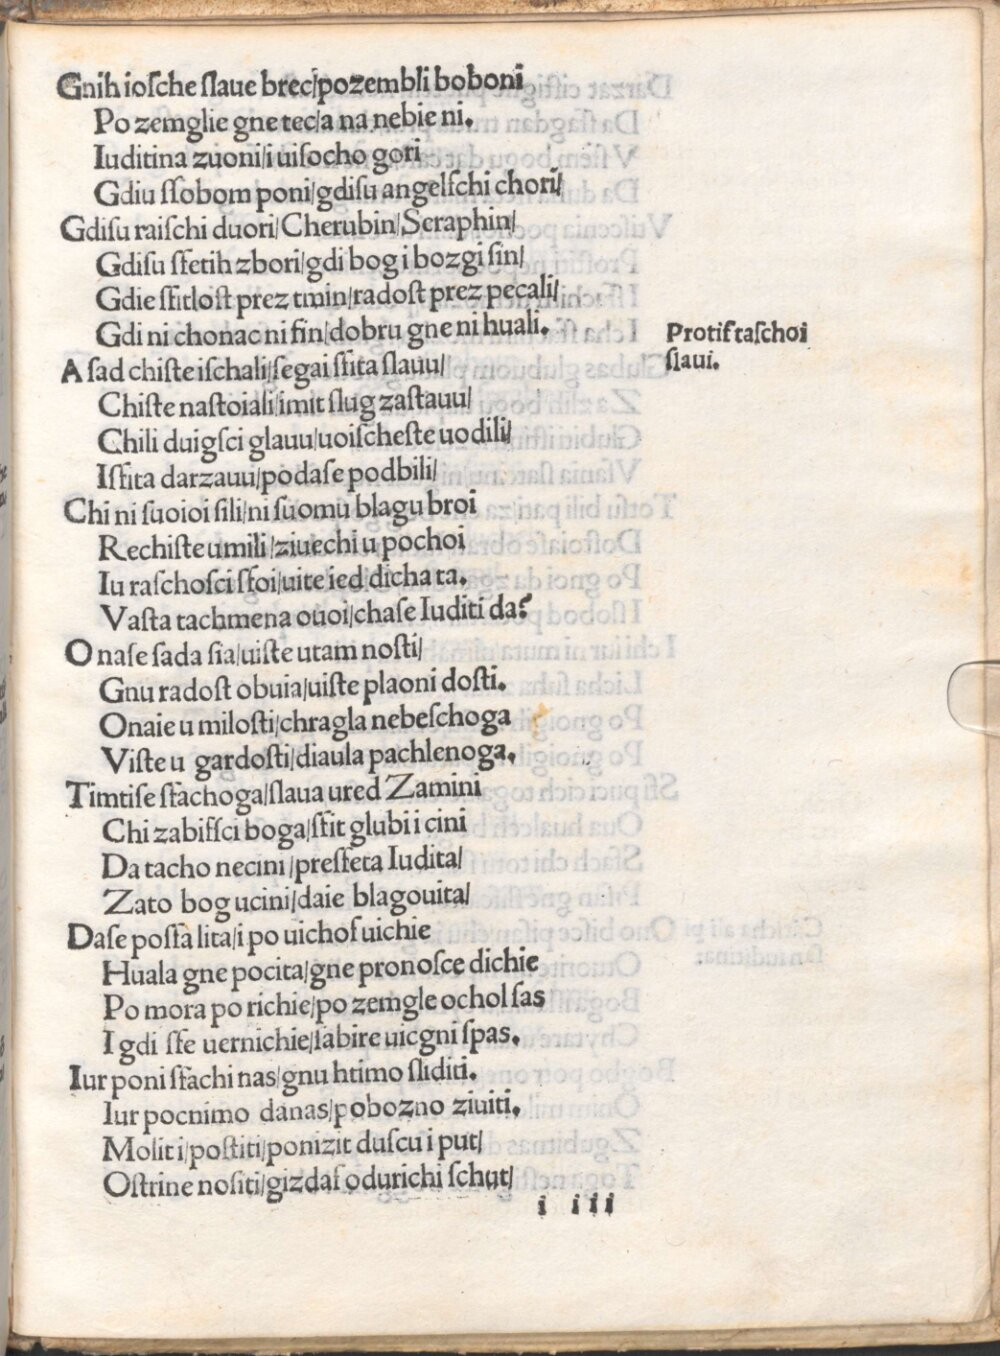 Gnih ioſche ſlaue brec/pozembli boboni
Po zemglie gne tec/a na nebie ni.
Iuditina zuoni/i uiſocho gori
Gdiu ſſobom poni/gdiſu angelſchi chori/
Gdiſu raiſchi duori/Cherubin/Seraphin/
Gdiſu ſfetih zbori/gdi bog i bozgi ſin/
Gdie ſfitloſt prez tmin/radoſt prez pecali/
Gdi ni chonac ni fin/dobru gne ni huali.
Protiftaſchoi
ſlaui.
A ſad chiſte iſchali/ſegai ſfita ſlauu/
Chiſte naſtoiali/imit ſlug zaſtauu/
Chili duigſci glauu/uoiſcheſte uodili/
Iſfita darzauu/podaſe podbili/
Chi ni ſuoioi ſili/ni ſuomu blagu broi
Rechiſte umili/ziuechi u pochoi
Iu raſchoſci ſfoi/uite ied/dicha ta.
Vaſta tachmena ouoi/chaſe Iuditi da?
O naſe ſada ſia/uiſte utam noſti/
Gnu radoſt obuia/uiſte plaoni doſti.
Onaie u miloſti/chragla nebeſchoga
Viſte u gardoſti/diaula pachlenoga.
Timtiſe ſfachoga/ſlaua ured Zamini
Chi zabiſſci boga/ſfit glubi i cini
Da tacho necini/preſfeta Iudita/
Zato bog ucini/daie blagouita/
Daſe poſfa lita/i po uichof uichie
Huala gne pocita/gne pronoſce dichie
Po mora po richie/po zemgle ochol ſas
I gdi ſfe uernichie/ſabire uicgni ſpas.
Iur poni ſfachi nas/gnu htimo ſliditi.
Iur pocnimo danas/pobozno ziuiti.
Molit i/poſtiti/ponizit duſcu i put/
Oſtrine noſiti/gizdaſ odurichi ſchut/
i iii